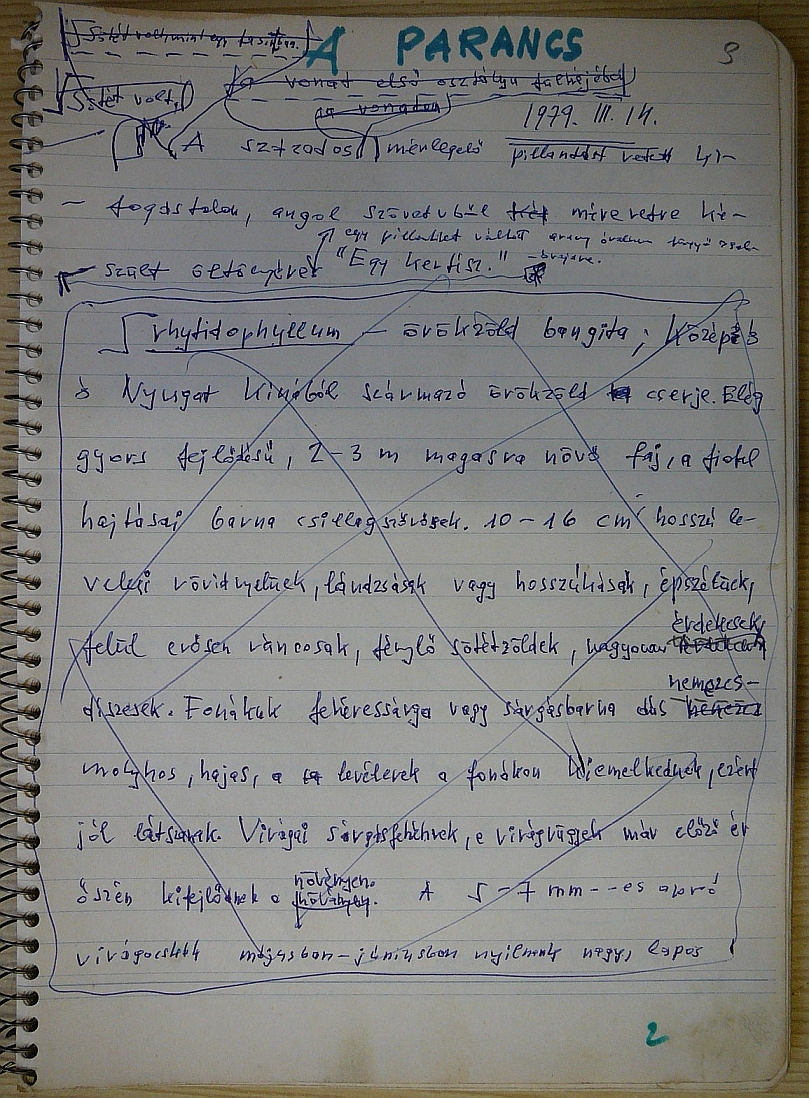 A PARANCS
3
Sötét volt,
a vonat első osztályu
a vonaton
1979. III. 14.
A százados mérlegelő pillantást vetett ki-
fogástalan, angol szövetből méretre ké-
egy pillantást váltott arany
szült öltönyére "Egy kertész."
rhytidophyllum – örökzöld bangita; Közép és
Nyugat Kínából származó örökzöld cserje. Elég
gyors fejlődésű, 2–3 m magasra növő faj, a fiatal
hajtásai barna csillagszőrösek. 10–16 cm hosszú le-
velei rövidnyelűek, lándzsásak vagy hosszúkásak, épszélűek,
érdekesek,
felül erősen ráncosak, fénylő sötétzöldek, nagyon
nemezs-
díszesek. Fonákuk fehéressárga vagy sárgásbarna dús
molyhos, hajas, a levélerek a fonákon kiemelkednek, ezért
jól látszanak. Virágai sárgásfehérek, e virágrügyek már előző év
növényen.
őszén kifejlődnek a növényen. A 5–7 mm--es apró
virágocskák májusban–júniusban nyílnak nagy, lapos
2